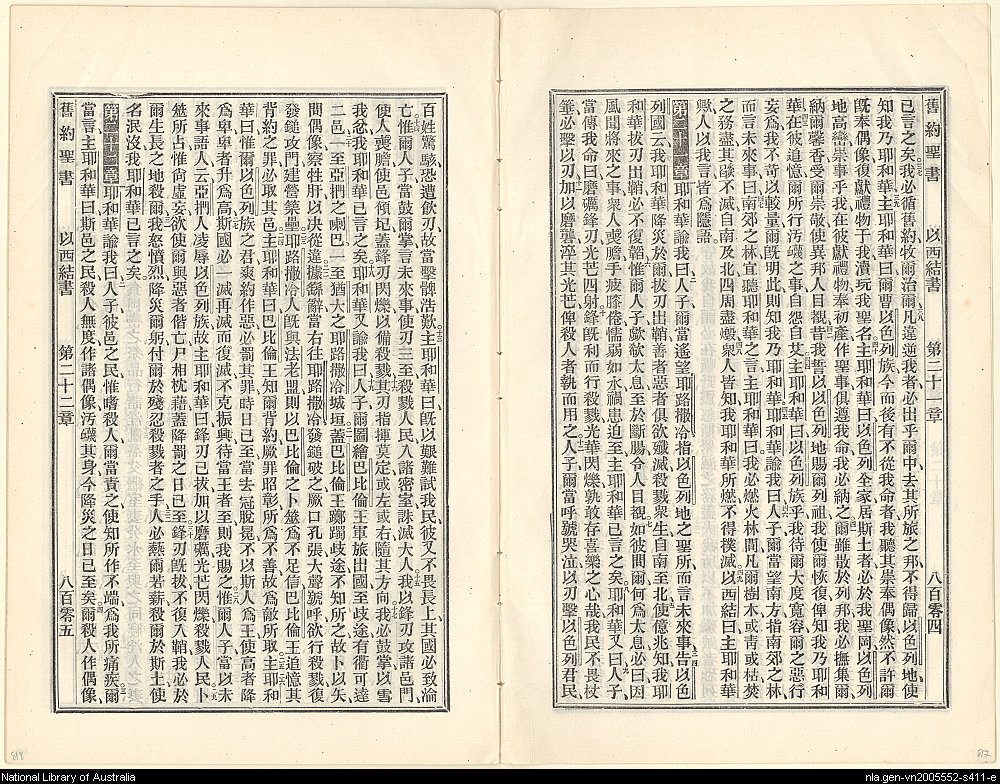 舊約聖書 以西結書 第二十一章 八百零四
已言之矣我必循舊約牧爾治爾凡違逆我者必出乎爾中去其所旅之邦不得歸以色列地使
知我乃耶和華主耶和華曰爾曹以色列族今而後有不從我命者我聽其崇奉偶像然不許爾
旣奉偶像復獻禮物于我瀆玩我聖名主耶和華曰以色列全家居斯土者必於我聖岡以色列
地高巒崇事乎我在彼獻禮物奉初產作聖事俱遵我命我必納之爾雖散於列邦我必撫集爾
納爾馨香受爾崇敬使異邦人目覩昔我誓以以色列地賜爾列祖我使爾恢復俾知我乃耶和
華在彼追憶爾所行汚衊之事自怨自艾主耶和華曰以色列族乎我待爾大度寬容爾之惡行
妄爲我不苛以較量爾旣明此則知我乃耶和華耶和華諭我曰人子爾當望南方指南郊之林
而言未來事曰南郊之林宜聽耶和華之言主耶和華曰我必燃火林間凡爾樹木或靑或枯焚
之務盡其燄不滅自南及北四周盡燬衆人皆知我耶和華所燃不得撲滅以西結曰主耶和華
歟人以我言皆爲隱語
第二十一章耶和華諭我曰人子爾當遙望耶路撒冷指以色列地之聖所而言未來事告以色
列國云我耶和華降災於爾拔刃出鞘善者惡者俱欲殲滅殺戮衆生自南至北使億兆知我耶
和華拔刃出鞘必不復韜惟爾人子歔欷太息至於斷腸令人目覩如彼問爾何爲太息必曰因
風聞將來之事衆人喪膽手疲膝倦懦弱如水禍患迫至主耶和華已言之矣耶和華又曰人子
當傳我命曰磨礪鋒刃光芒四射鋒旣利而行殺戮光華閃爍孰敢存喜樂之心哉我民不畏杖
箠必擊以刃加以磨礱淬其光芒俾殺人者執而用之人子爾當呼號哭泣以刃擊以色列君民
百姓驚駭恐遭飮刃故當擊髀浩歎主耶和華曰旣以艱難試我民彼又不畏長上其國必致淪
亡惟爾人子當鼓爾掌言未來事使刃三至殺戮人民入諸密室誅滅大人我以鋒刃攻諸邑門
使人喪膽使邑傾圮蓋鋒刃閃爍以備殺戮其刃指揮莫定或左或右隨其方向我必鼓掌以雪
我忿我耶和華已言之矣耶和華又諭我曰人子爾圖繪巴比倫王軍旅出國至歧途有衢可達
二邑一至亞捫之喇巴一至猶大之耶路撒冷城垣蓋巴比倫王躑躅歧途不知所之故卜以矢
問偶像察牲肝以決從違據繇辭當右往耶路撒冷發鎚破之厥口孔張大聲號呼欲行殺戮復
發鎚攻門建營築壘耶路撒冷人旣與法老盟則以巴比倫之卜筮爲不足信巴比倫王追憶其
背約之罪必取其邑主耶和華曰巴比倫王知爾背約厥罪昭彰所爲不善故爲敵所取主耶和
華曰惟爾以色列族之君爽約作惡必罰其罪時日已至當去冠脫冕不以斯人爲王使高者降
爲卑卑者升爲高斯國必一滅再滅而復滅不克振興待當王者至則我賜之惟爾人子當以未
來事語人云亞捫人凌辱以色列族故主耶和華曰鋒刃已拔加以磨礪光芒閃爍殺戮人民卜
筮所占惟尙虛妄欲使爾與惡者偕亡尸相枕藉蓋降罰之日已至鋒刃旣拔不復入鞘我必於
爾生長之地殺爾我怒憤烈降災爾躬付爾於殘忍殺戮者之手人必爇爾若薪殺爾於斯土使
名泯沒我耶和華已言之矣
第二十二章耶和華諭我曰人子彼邑之民惟嗜殺人爾當責之使知所作不端爲我所痛疾爾
當言主耶和華曰斯邑之民殺人無度作諸偶像汚衊其身今降災之日已至矣爾殺人作偶像
舊約聖書 以西結書 第二十二章 八百零五
818
817
National Library of Australia
nla.gen-vn2005552-s411-e